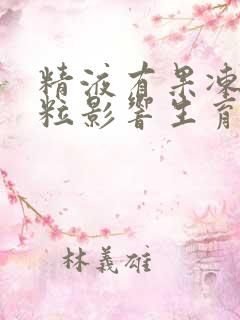 精液有果凍
粒影響生育
林義雄